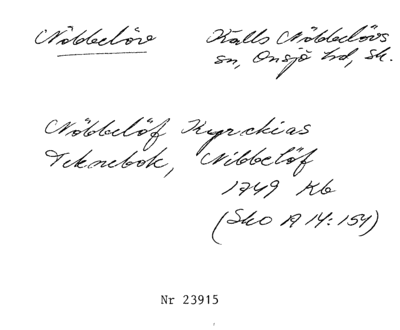 Nöbbelöv
Kalls Nöbbelövs
sn, Onsjö hd, Sk.
Nöbbelöf Kyrckias
Teknebok, Nibbelöf
1749 Kb
(Sko A 14:154)
Nr 23915